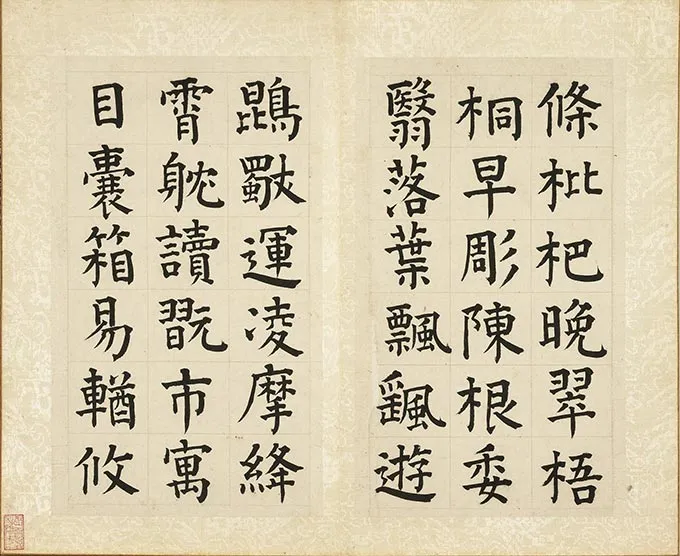 條枇杷晚翠梧
桐早彫陳根委
翳落葉飄颻遊
鵾獨運凌摩絳
霄躭讀翫市寓
目囊箱易輶攸